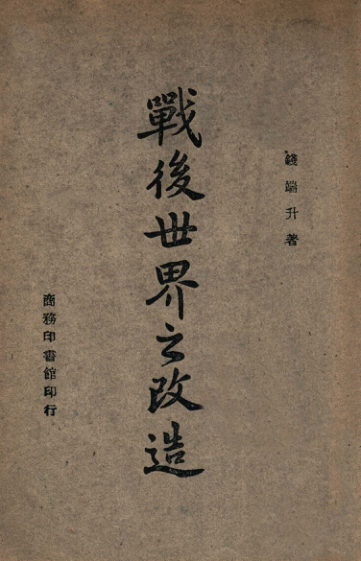 錢端升著
戰後世界之改造
商務印書館印行